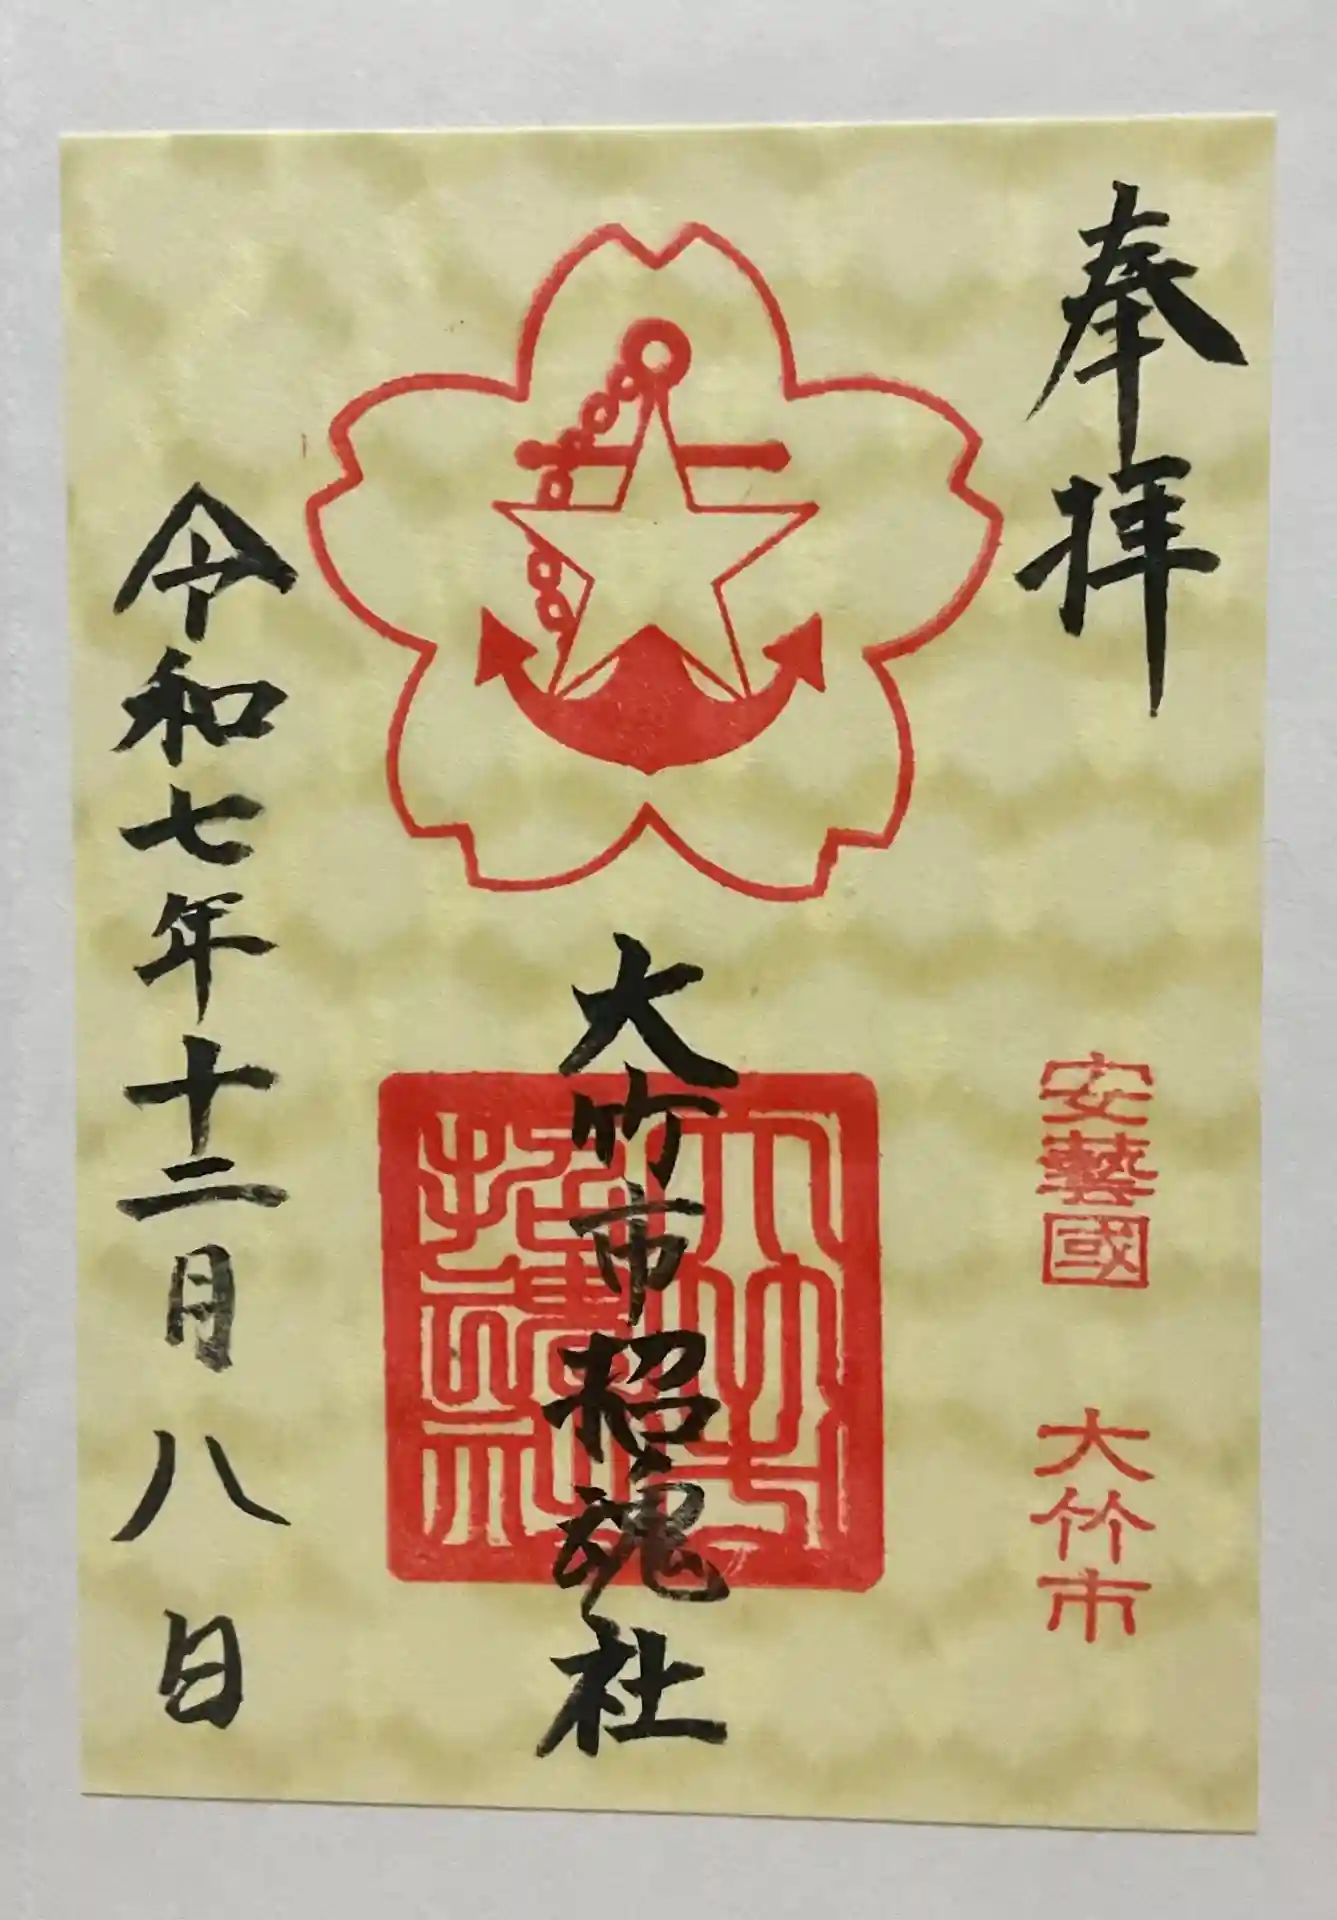 奉拝
安藝國 大竹市
大竹市招魂社
大竹市招魂社
令和七年十二月八日